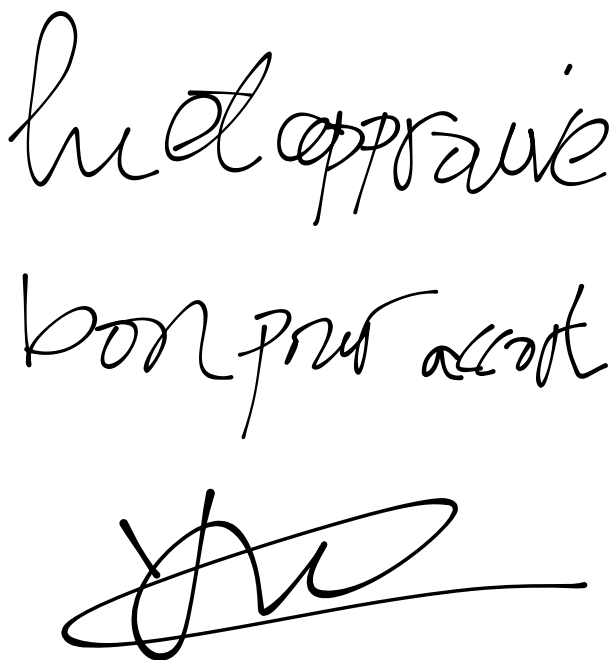 lu et approuvé
bon pour accord